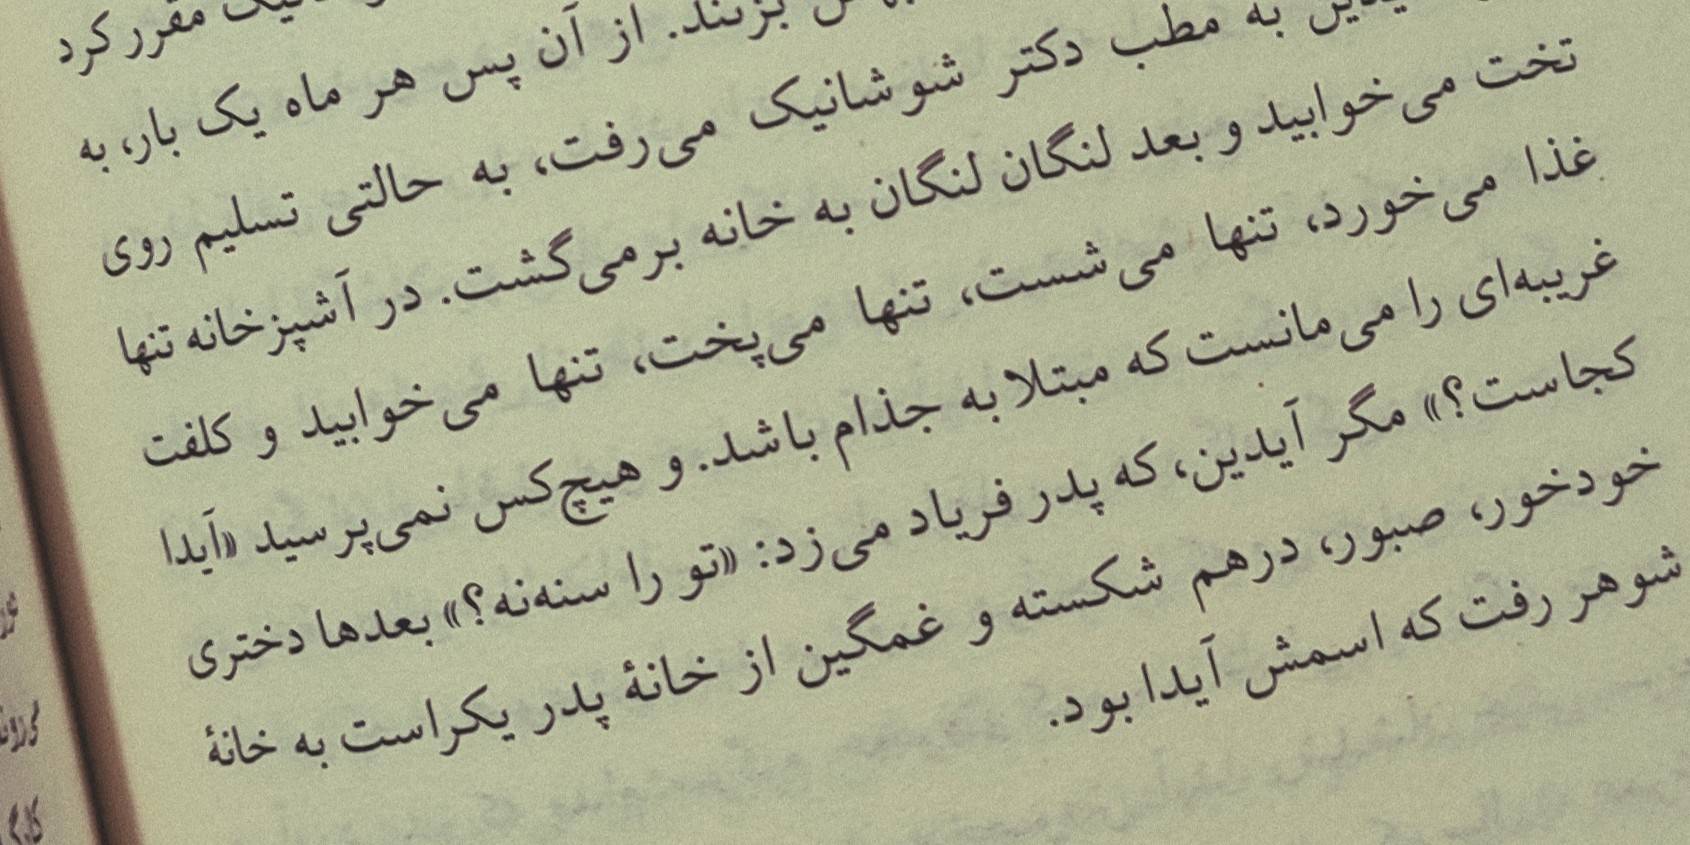 مقرر کرد
بزنند. از آن پس هر ماه یک بار، به
به مطب دکتر شوشانیک می‌رفت، به حالتی تسلیم روی
تخت می‌خوابید و بعد لنگان لنگان به خانه برمی‌گشت. در آشپزخانه تنها
غذا می‌خورد، تنها می‌شست، تنها می‌پخت، تنها می‌خوابید و کلفت
غریبه‌ای را می‌مانست که مبتلا به جذام باشد. و هیچ‌کس نمی‌پرسید «آیدا
کجاست؟» مگر آیدین، که پدر فریاد می‌زد: «تو را سنه‌نه؟» بعدها دختری
خودخور، صبور، درهم شکسته و غمگین از خانهٔ پدر یکراست به خانهٔ
شوهر رفت که اسمش آیدا بود.